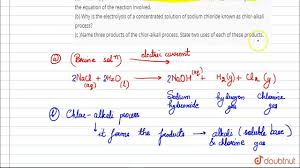 the equation of the reaction involved.
(b) Why is the electrolysis of a concentrated solution of sodium chloride known as chlor-alkali process?
(c) Name three products of the chlor-alkali process. State two uses of each of these products.
(a) (Brine solⁿ) electric current
2NaCl + 2H₂O → 2NaOH (aq) + H₂(g) + Cl₂ (g)
(aq) (l)
Sodium hydrogen Chlorine
hydroxide gas gas
(b) Chlor-alkali process
it forms the products → alkali (soluble base)
& chlorine gas
doubtnut